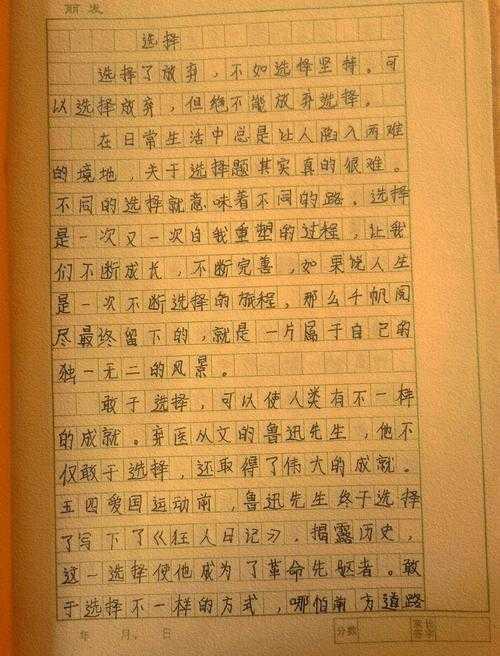 丽发
选择
选择了放弃，不如选择坚持。可
以选择放弃，但绝不能放弃选择。
在日常生活中总是让人陷入两难
的境地，关于选择题其实真的很难。
不同的选择就意味着不同的路。选择
是一次又一次自我重塑的过程，让我
们不断成长，不断完善，如果说人生
是一次不断选择的旅程，那么千帆阅
尽最终留下的，就是一片属于自己的
独一无二的风景。
敢于选择，可以使人类有不一样
的成就。弃医从文的鲁迅先生，他不
仅敢于选择，还取得了伟大的成就。
五四爱国运动前，鲁迅先生终于选择
了写下了《狂人日记》，揭露历史，
这一选择使他成为了革命先驱者。敢
于选择不一样的方式，哪怕前方道路
年 月 日 分数 家长签字